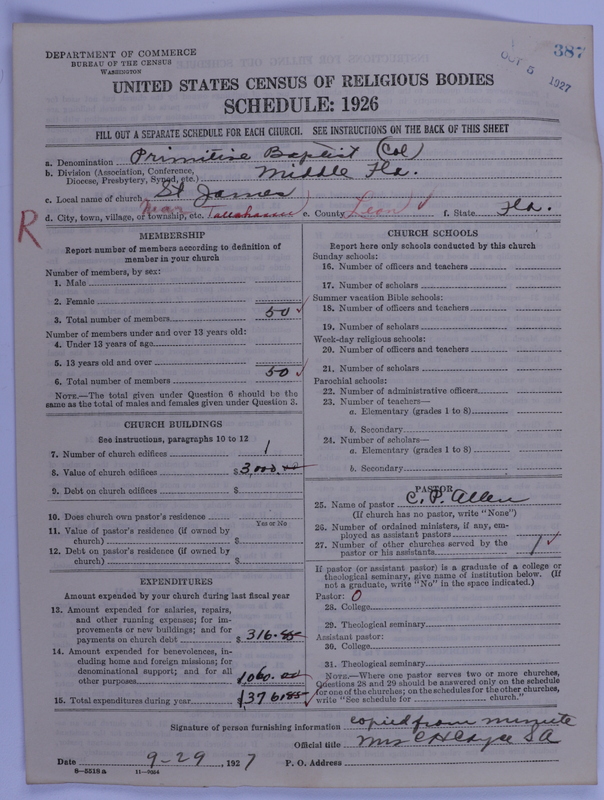 DEPARTMENT OF COMMERCE
BUREAU OF THE CENSUS
WASHINGTON
387
OCT 5 1927
UNITED STATES CENSUS OF RELIGIOUS BODIES
SCHEDULE: 1926
FILL OUT A SEPARATE SCHEDULE FOR EACH CHURCH. SEE INSTRUCTIONS ON THE BACK OF THIS SHEET
a. Denomination Primitive Baptist (Col)
b. Division (Association, Conference, Diocese, Presbytery, Synod, etc.) Middle Fla.
c. Local name of church St James
R
d. City, town, village, or township, etc. near Tallahassee e. County Leon f. State Fla.
MEMBERSHIP
Report number of members according to definition of
member in your church
Number of members, by sex:
1. Male
2. Female
3. Total number of members 50
Number of members under and over 13 years old:
4. Under 13 years of age
5. 13 years old and over
6. Total number of members 50
NOTE.—The total given under Question 6 should be
same as the total of males and females given under Question 3.
CHURCH BUILDINGS
See instructions, paragraphs 10 to 12
7. Number of church edifices 1
8. Value of church edifices $3,000.00
9. Debt on church edifices $
10. Does church own pastor's residence
Yes or No
11. Value of pastor's residence (if owned by
church) $
12. Debt on pastor's residence (if owned by
church) $
EXPENDITURES
Amount expended by your church during last fiscal year
13. Amount expended for salaries, repairs,
and other running expenses; for im-
provements or new buildings; and for
payments on church debt $ 316.85
14. Amount expended for benevolences, in-
cluding home and foreign missions; for
denominational support; and for all
other purposes 1060.00
15. Total expenditures during year $1376.85
CHURCH SCHOOLS
Report here only schools conducted by this church
Sunday schools:
16. Number of officers and teachers
17. Number of scholars
Summer vacation Bible schools:
18. Number of officers and teachers
19. Number of scholars
Week-day religious schools:
20. Number of officers and teachers
21. Number of scholars
Parochial schools:
22. Number of administrative officers
23. Number of teachers—
a. Elementary (grades 1 to 8)
b. Secondary
24. Number of scholars—
a. Elementary (grades 1 to 8)
b. Secondary
PASTOR
25. Name of pastor C. P. Allen
(If church has no pastor, write "None")
26. Number of ordained ministers, if any, em-
ployed as assistant pastors
27. Number of other churches served by the
pastor or his assistants 1
If pastor (or assistant pastor) is a graduate of a college or
theological seminary, give name of institution below. (If
not a graduate, write "No" in the space indicated.)
Pastor: 0
28. College
29. Theological seminary
Assistant pastor:
30. College
31. Theological seminary
NOTE.—Where one pastor serves two or more churches,
Questions 28 and 29 should be answered only on the schedule
for one of the churches; on the schedules for the other churches,
write "See schedule for church."
Signature of person furnishing information copied from minute
Official title Mrs S A
Date 9-29, 1927 P. O. Address
8-5518a 11-9034